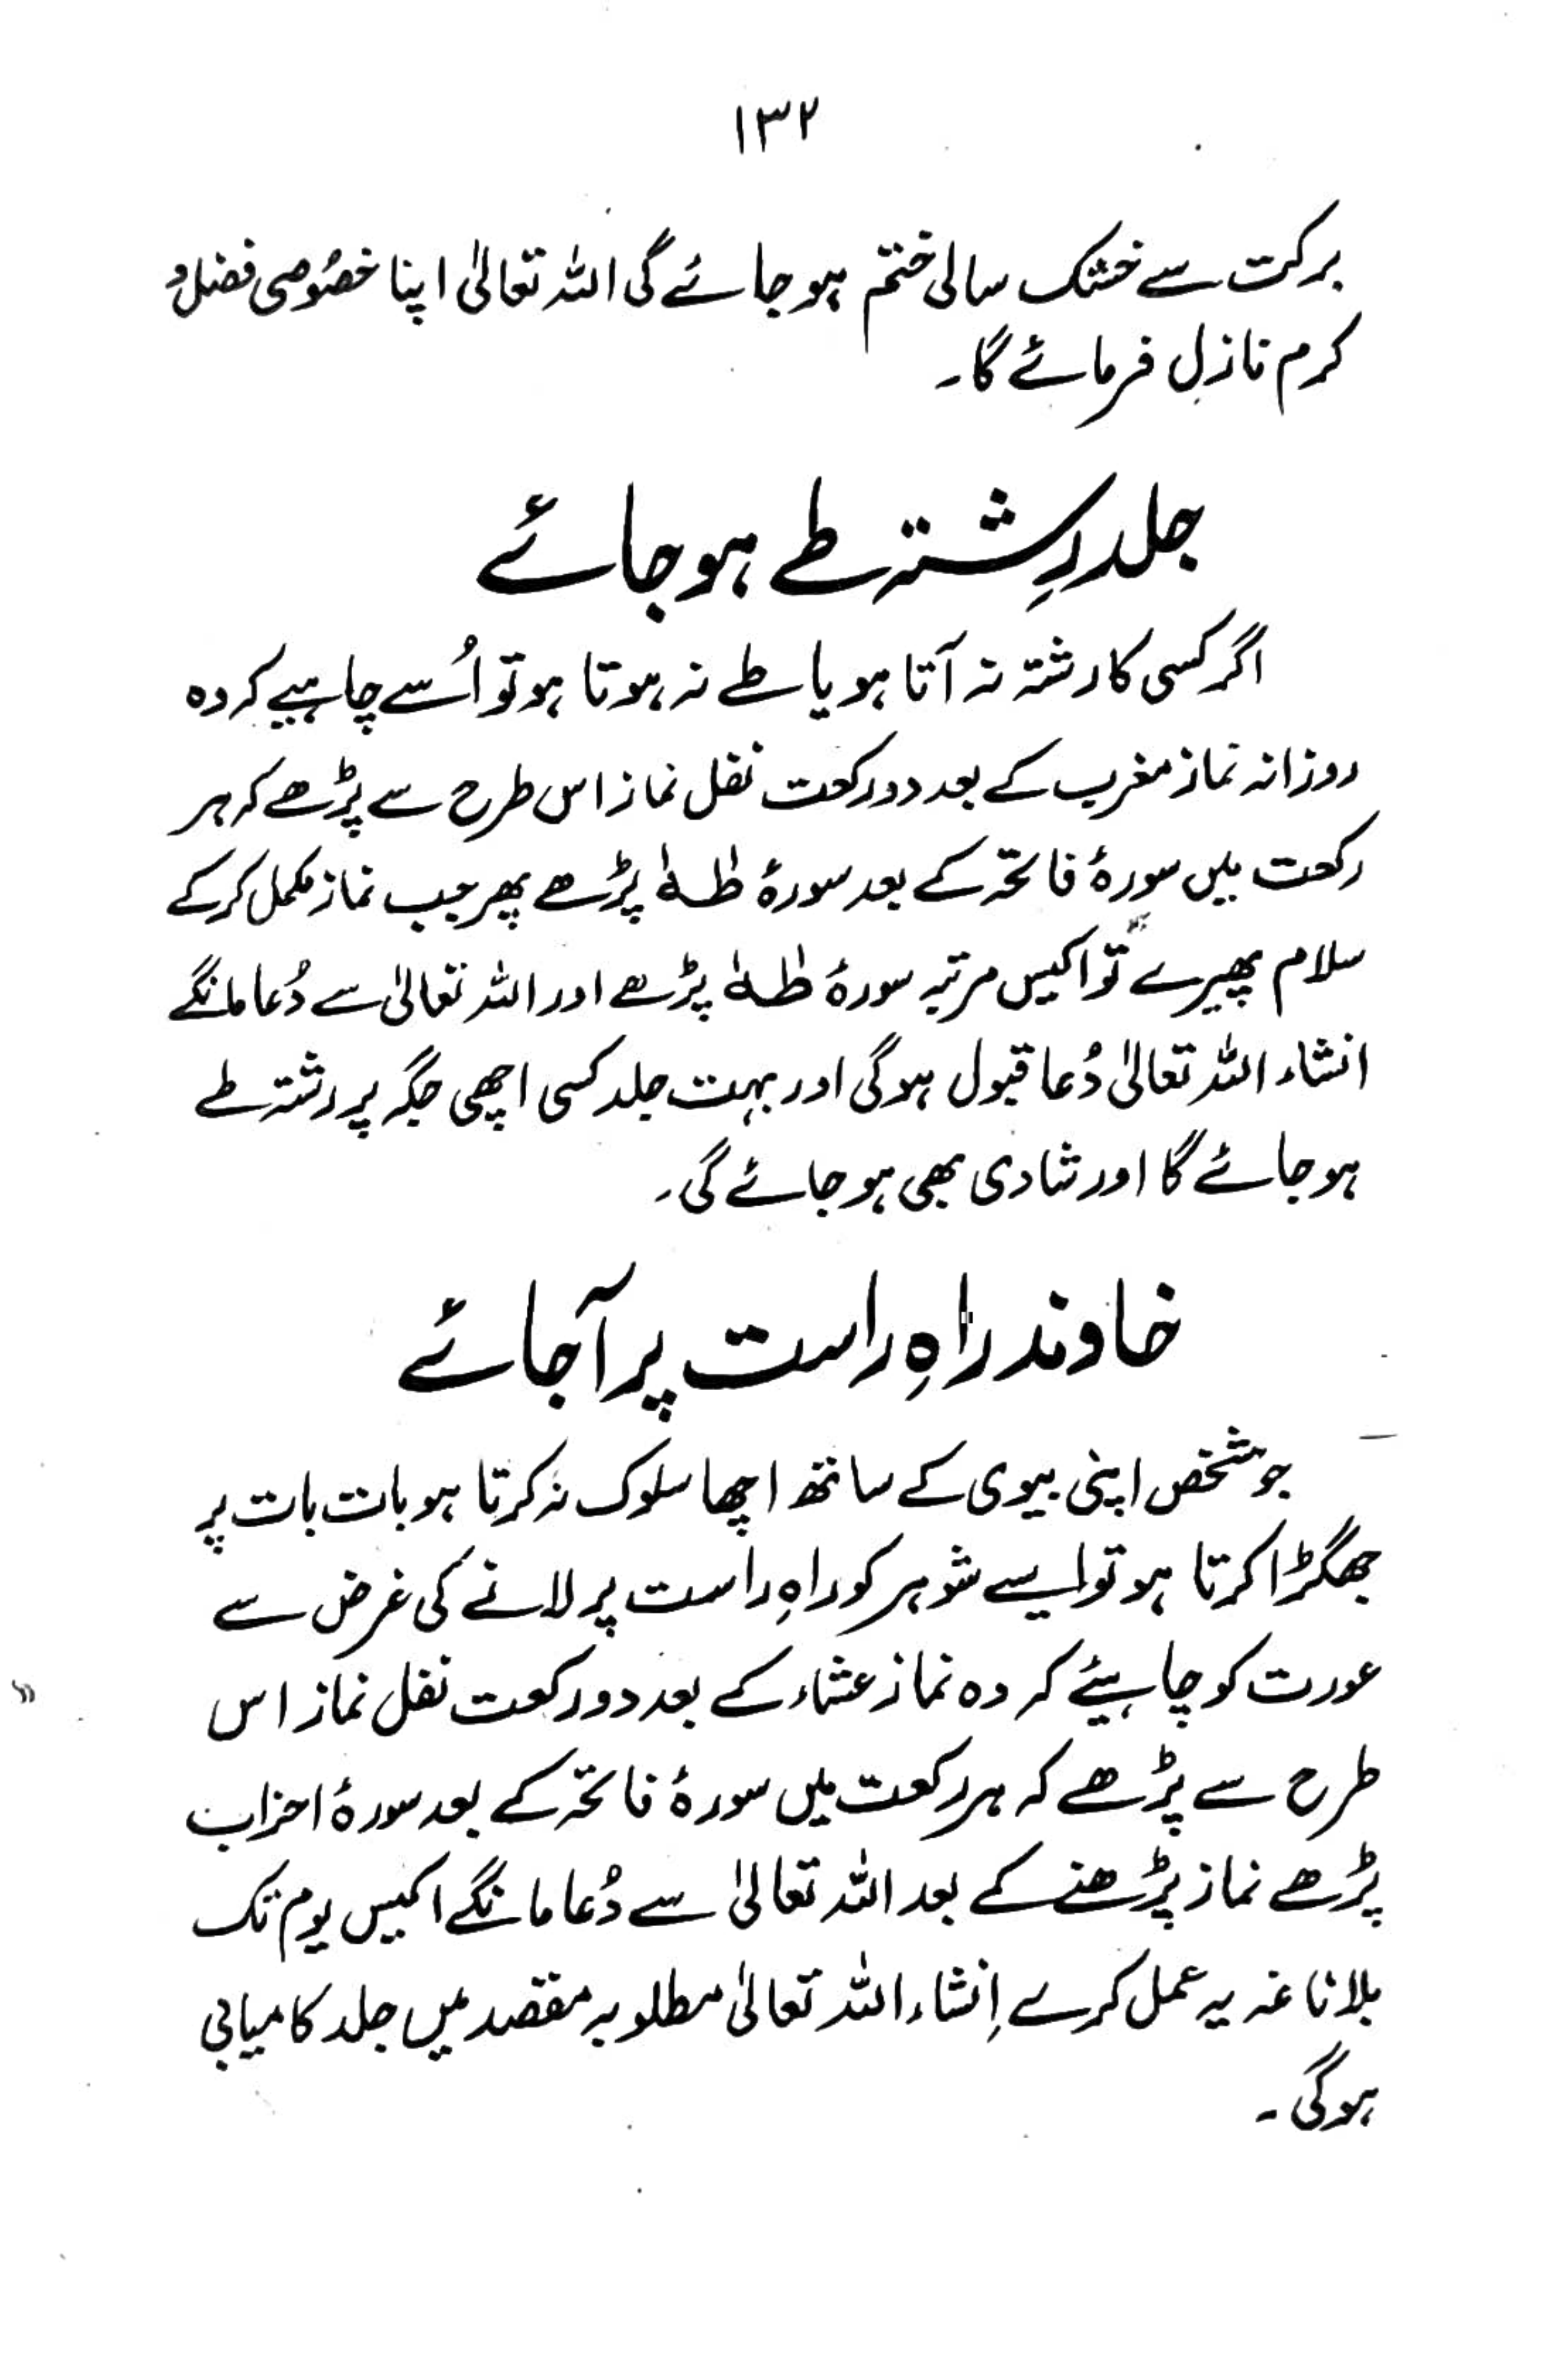 ۱۳۲
برکت سے خشک سالی ختم ہو جائے گی اللہ تعالیٰ اپنا خصُوصی فضل و
کرم نازل فرمائے گا۔
جلد رِشتہ طے ہو جائے
اگر کسی کا رشتہ نہ آتا ہو یا طے نہ ہوتا ہو تو اُسے چاہیے کہ وہ
روزانہ نماز مغرب کے بعد دو رکعت نفل نماز اس طرح سے پڑھے کہ ہر
رکعت میں سورۂ فاتحہ کے بعد سورۂ طٰہٰ پڑھے پھر جب نماز مکمل کر کے
سلام پھیرے تو اکیس مرتبہ سورۂ طٰہٰ پڑھے اور اللہ تعالیٰ سے دُعا مانگے
انشاء اللہ تعالیٰ دُعا قبول ہوگی اور بہت جلد کسی اچھی جگہ پر رشتہ طے
ہو جائے گا اور شادی بھی ہو جائے گی۔
خاوند راہِ راست پر آجائے
جو شخص اپنی بیوی کے ساتھ اچھا سلوک نہ کرتا ہو بات بات پر
جھگڑا کرتا ہو تو ایسے شوہر کو راہِ راست پر لانے کی غرض سے
عورت کو چاہیئے کہ وہ نماز عشاء کے بعد دو رکعت نفل نماز اس
طرح سے پڑھے کہ ہر رکعت میں سورۂ فاتحہ کے بعد سورۂ احزاب
پڑھے نماز پڑھنے کے بعد اللہ تعالیٰ سے دُعا مانگے اکیس یوم تک
بلا ناغہ یہ عمل کرے اِنشاء اللہ تعالیٰ مطلوبہ مقصد میں جلد کامیابی
ہوگی۔